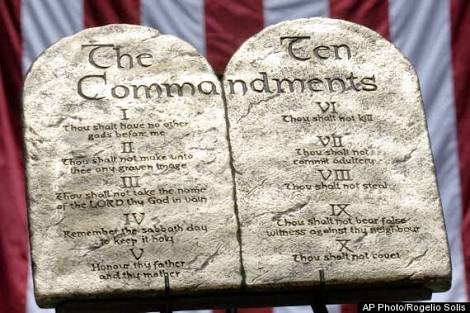 The Ten
Commandments
I
Thou shalt have no other
gods before me
II
Thou shalt not make unto
thee any graven image
III
Thou shalt not take the name
of the LORD thy God in vain
IV
Remember the sabbath day
to keep it holy
V
Honour thy father
and thy mother
VI
Thou shalt not kill
VII
Thou shalt not
commit adultery
VIII
Thou shalt not steal
IX
Thou shalt not bear false
witness against thy neighbour
X
Thou shalt not covet
AP Photo/Rogelio Solis